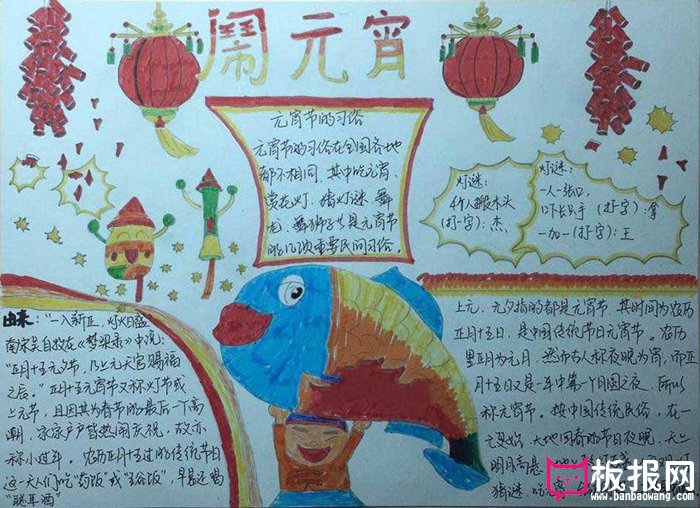 闹元宵
元宵节的习俗
元宵节的习俗在全国各地
都不相同,其中吃元宵、
赏花灯、猜灯谜、舞
龙、舞狮子是元宵节
的几次重要民间习俗。
灯谜:
4个人搬木头
(打一字):杰
灯谜:
一人一张口
口下长只手(打一字):拿
一加一(打一字):王
由来:"一入新正,灯火日盛
南宋吴自牧在《梦粱录》中说:
"正月十五元夕节,乃上元天官赐福
之辰。"正月十五元宵节又称灯节或
上元节,且因其为春节的最后一个高
潮,家家户户皆热闹庆祝,故亦
称小过年。农历正月十五过的传统节日
这一天人们吃"药饭"或"五谷饭",早晨还喝
"聪耳酒"
上元、元夕指的都是元宵节,其时间为农历
正月十五日,是中国传统节日元宵节。农历
里正月为元月,然而古人称夜晚为宵,而正
月十五又是一年中第一个月圆之夜,所以
称元宵节。按中国传统民俗,在一
元复始,大地回春的节日夜晚,天上
明月高悬
猜谜、吃元宵
板报网
www.banbaowang.com